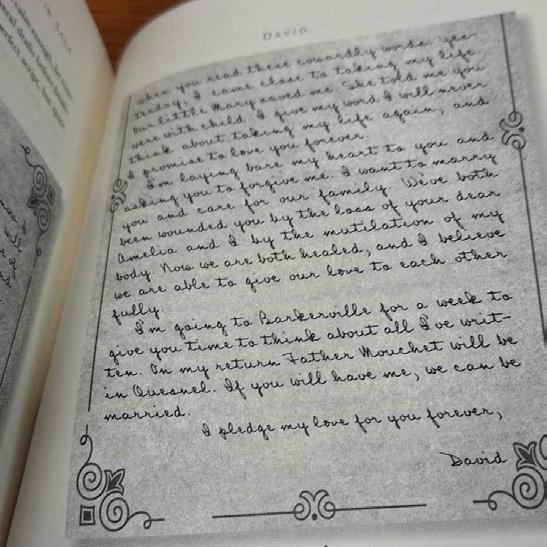 DAVID
when you read these cowardly words. Yes-
terday, I came close to taking my life.
Our little Mary saved me. She told me you
were with child. I give my word I will never
think about taking my life again, and
I promise to love you forever.
I'm laying bare my heart to you and
asking you to forgive me. I want to marry
you and care for our family. We've both
been wounded you by the loss of your dear
Amelia and I by the mutilation of my
body. Now we are both healed, and I believe
we are able to give our love to each other
fully.
I'm going to Barkerville for a week to
give you time to think about all I've writ-
ten. On my return Father Mouchet will be
in Quesnel. If you will have me, we can be
married.
I pledge my love for you forever,
David